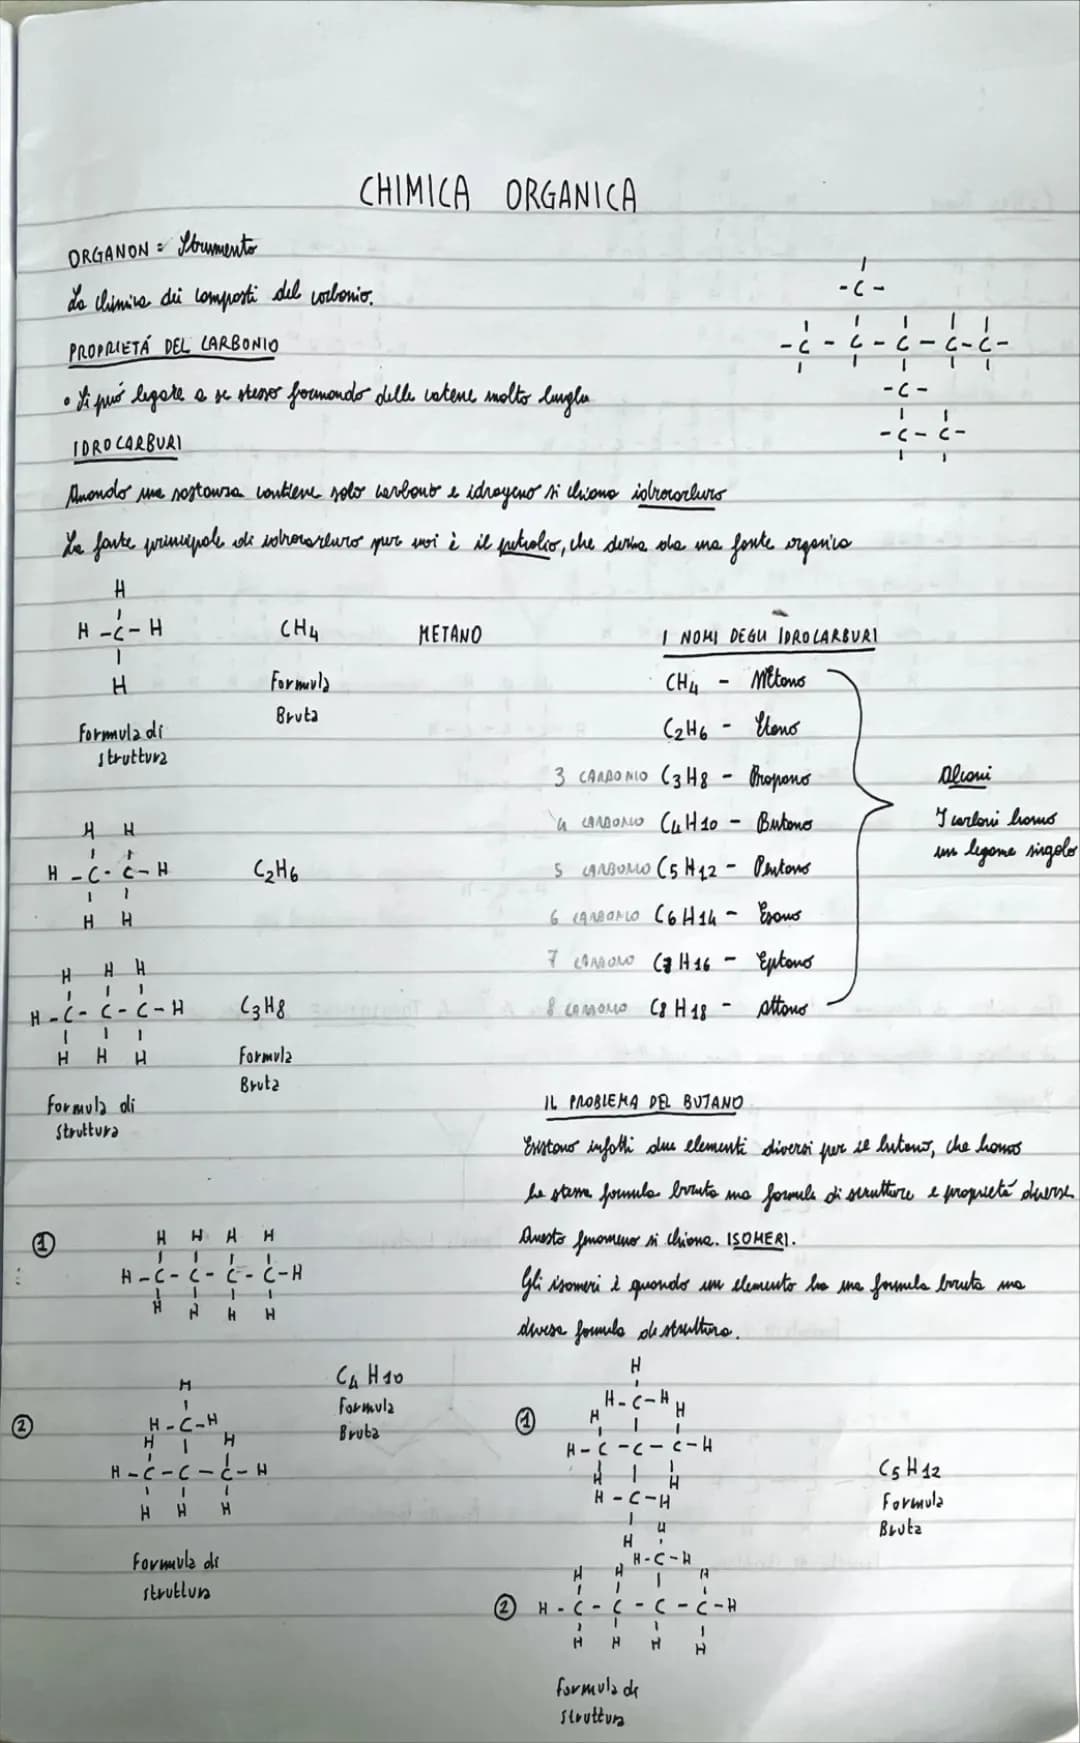 CHIMICA ORGANICA
ORGANON = Strumento
La chimica dei composti del carbonio.
PROPRIETÁ DEL CARBONIO
• Si puó legare a se stesso formando delle catene molto lunghe
IDROCARBURI
Quando una sostanza contiene solo carbonio e idrogeno si chiama idrocarburo
La fonte principale di idrocarburo per noi è il petrolio, che deriva da una fonte organica
- C -
- C - C - C - C - C -
- C -
- C - C -
H
H - C - H
H
Formula di
struttura
CH4
Formula
Bruta
METANO
H H
H - C - C - H
H H
C2H6
H H H
H - C - C - C - H
H H H
Formula di
struttura
C3H8
Formula
Bruta
I NOMI DEGLI IDROCARBURI
CH4 - Metano
C2H6 - Etano
3 CARBONIO C3H8 - Propano
4 CARBONIO C4H10 - Butano
5 CARBONIO C5H12 - Pentano
6 CARBONIO C6H14 - Esano
7 CARBONIO C7H16 - Eptano
8 CARBONIO C8H18 - Ottano
Alcani
I carboni hanno
un legame singolo
IL PROBLEMA DEL BUTANO
Esistono infatti due elementi diversi per il butano, che hanno
la stessa formula bruta ma formule di strutture e proprietá diverse
Questo fenomeno si chiama. ISOMERI.
Gli isomeri è quando un elemento ha una formula bruta ma
diversa formula di struttura.
1
H H H H
H - C - C - C - C - H
H H H H
2
H
H - C - H
H H
H - C - C - C - H
H H H
C4H10
Formula
Bruta
Formula di
struttura
1
H
H - C - H
H H
H - C - C - C - H
H H
H - C - H
H
2
H
H - C - H
H H H
H - C - C - C - C - H
H H H H
C5H12
Formula
Bruta
Formula di
struttura